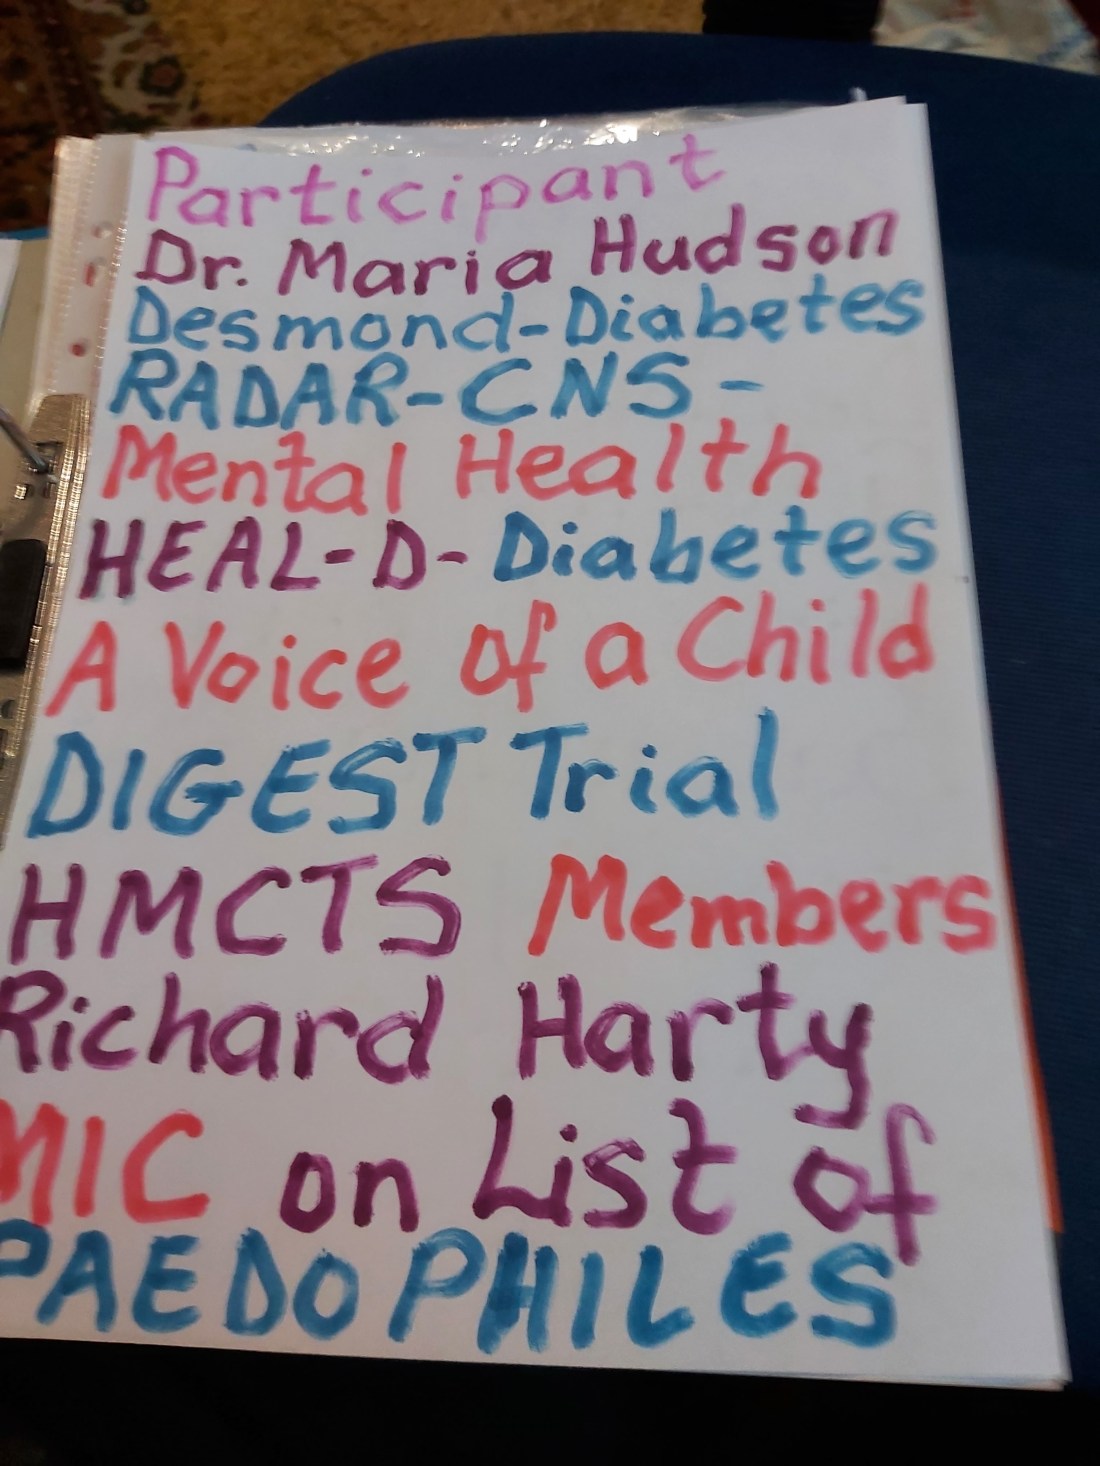 Participant
Dr. Maria Hudson
Desmond-Diabetes
RADAR-CNS-
Mental Health
HEAL-D-Diabetes
A Voice of a Child
DIGEST Trial
HMCTS Members
Richard Harty
MIC on List of
PAEDOPHILES